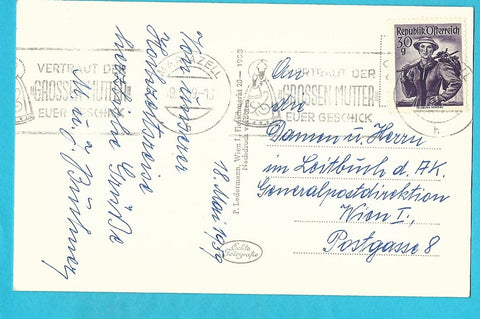 Von unserer
Hochzeitsreise
herzliche Grüße
M. u. J.
18. Mai 1959
P. Ledermann, Wien I, Fleischmarkt 20 — 1953
Nachdruck verboten
Echte
Fotografie
MARIAZELL
VERTRAUT DER
„GROSSEN MUTTER“
EUER GESCHICK
VERTRAUT DER
GROSSEN MUTTER
EUER GESCHICK
Republik Österreich
30
g
An
die
Damen u. Herrn
im Leitbuch d. A.K.
Generalpostdirektion
Wien I.,
Postgasse 8